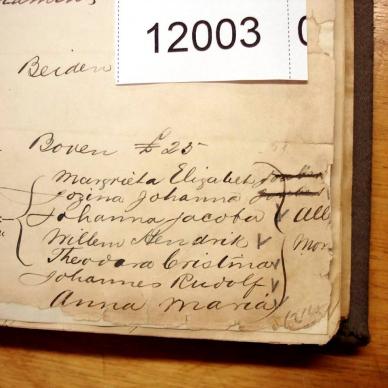 12003
Beiden
Boven £25
Margrieta Elizabeth
Jozina Johanna
Johanna Jacoba All
Willem Hendrik Mon
Theodora Cristina
Johannes Rudolf
Anna Maria